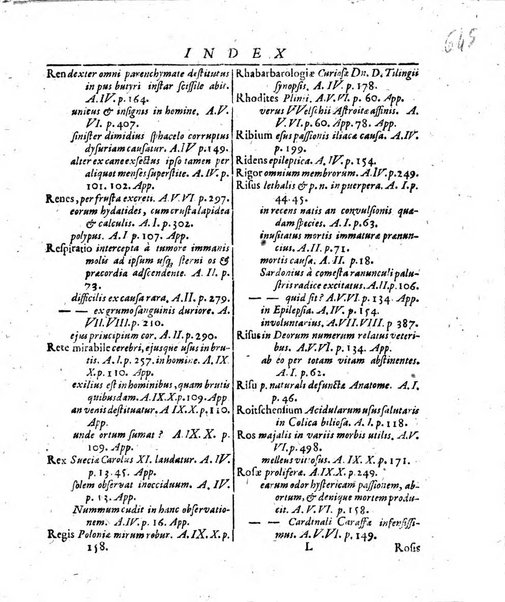 INDEX
645
Ren dexter omni parenchymate destitutus
in pus butyri instar scissile abit.
A. IV. p. 164.
unicus & insignis in homine. A. V.
VI. p. 407.
sinister dimidius sphacelo corruptus
dysuriam causatur. A. IV p. 149.
alter ex cane exsectus ipso tamen per
aliquot menses superstite. A. IV. p.
101. 102. App.
Renes, per frusta excreti. A. V. VI p. 297.
eorum hydatides, cum crusta lapidea
& calculis. A. I. p. 302.
polypus. A. I p. 107. App.
Respiratio intercepta à tumore immanis
molis ad ipsum usq; sterni os &
præcordia adscendente. A. II. p.
73.
difficilis ex causa rara. A. II. p. 279.
— — ex grumo sanguinis duriore. A.
VII. VIII. p. 210.
ejus principium cor. A. II. p. 290.
Rete mirabile cerebri, ejusque usus in bru-
tis. A. I. p. 257. in homine. A. IX.
X. p. 110. App.
exilius est in hominibus, quam brutis
quibusdam. A. IX. X. p. 109. App
an venis destituatur. A IX. X. p. 110.
App.
unde ortum sumat? A. IX. X. p.
109. App.
Rex Sueciæ Carolus XI. laudatur. A. IV.
p. 13. 45. App.
solem observat inocciduum. A. IV.
p. 16. App.
Nummum cudit in hanc observatio-
nem. A. IV. p. 16. App.
Regis Poloniæ mirum robur. A. IX. X. p.
158.
Rhabarbarologiæ Curiosæ Dn. D. Tilingii
synopsis. A. IV. p. 178.
Rhodites Plinii. A. V. VI. p. 60. App.
verus VVelschii Astroitæ affinis. A.
V. VI. p. 60. App. 78. App.
Ribium esus passionis iliacæ causa. A. IV.
p. 199.
Ridens epileptica. A. IV. p. 154.
Rigor omnium membrorum. A. IV. p. 249.
Risus lethalis & p. n. in puerpera. A. I. p.
44. 45.
in recens natis an convulsionis quæ-
dam species. A. I. p. 63.
inusitatus mortis immaturæ prænun-
cius. A. II. p. 71.
mortis causa. A. II. p. 18.
Sardonius à comesta ranunculi palu-
stris radice excitatus. A. II. p. 106.
— — quid sit? A. V. VI. p. 134. App.
in Epilepsia. A. IV. p. 154.
involuntarius. A. VII. VIII p. 387.
Risus in Deorum numerum relatus veteri-
bus. A. V. VI. p. 134. App.
ab eo per totam vitam abstinentes.
A. I. p. 62.
Risu p. naturali defunctæ Anatome. A. I.
p. 46.
Roitschensium Acidularum usus salutaris
in Colica biliosa. A. I. p. 118.
Ros majalis in variis morbis utilis. A. V.
VI. p. 498.
melleus vitrosus. A. IX. X. p. 171.
Rosæ proliferæ. A. IX. X. p. 249.
earum odor hystericam passionem, ab-
ortum, & denique mortem produ-
cit. A. V. VI. p. 158.
— — Cardinali Caraffæ infensissi-
mus. A. V. VI. p. 149.
L
Rosis